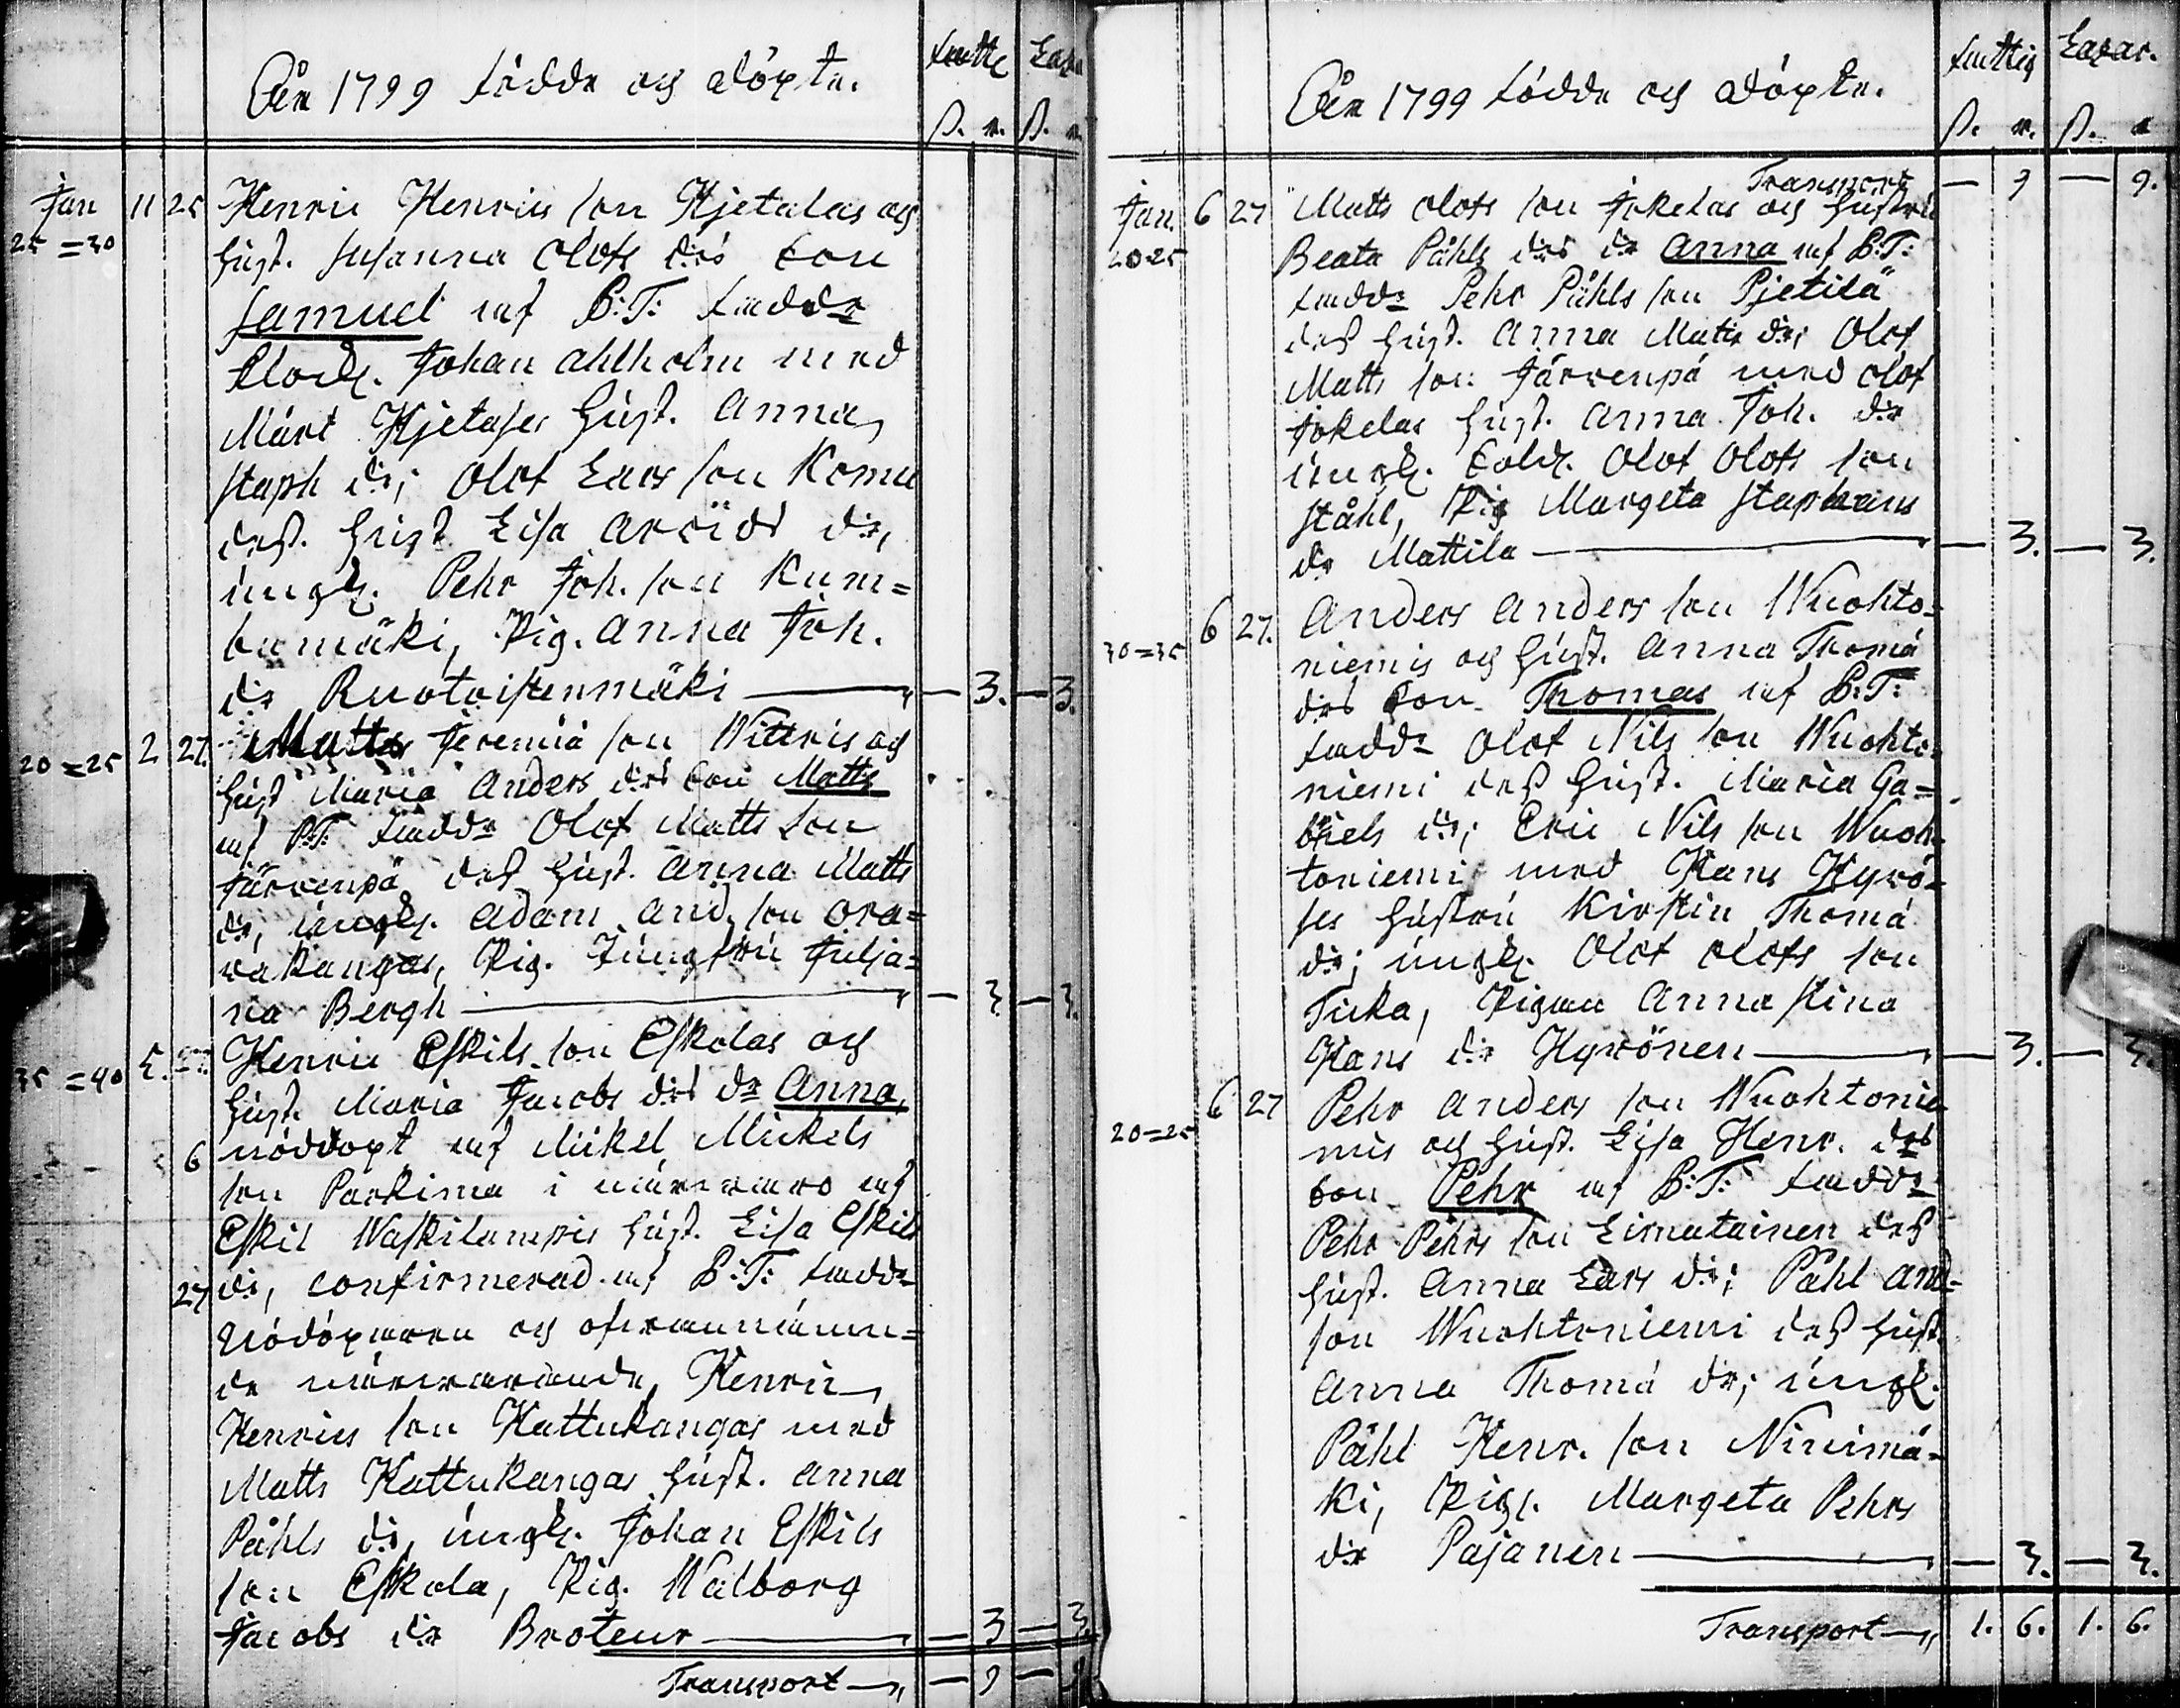 Åhr 1799 födde och döpte.
Fattig Lazar.
ß. r. ß. r.
Jan 11 25 Henric Henrics son Kjetalas och
25=30 hust. Susanna Olofs drs son
Samuel af B:T: faddr
Klock. Johan Ahlholm med
Mårt Kjetases hust. Anna
Staph dr; Olof Lars son Komu
dess hust Lisa Arvids dr,
ungk. Pehr Joh. son Kum=
bumäki, Pig. Anna Joh.
dr Ruotoistenmäki — 3. — 3.
20=25 2 27. Matts Jeremiæ son Wittric och
hust Maria Anders drs son Matts
af B:T: faddr Olof Matts son
Järvenpä dess hust. Anna Matts
dr, ungk. Adam And. son Ora=
vakangas, Pig. Jungfru Julja=
na Bergh — 3. — 3.
35=40 5. 27. Henric Eskils son Eskolas och
hust. Maria Jacobs drs dr Anna,
6 nöddöpt af Mickel Mickels
son Parkima i närvaro af
Eskil Waskilampis hust. Lisa Eskils
27 dr, confirmerad af B:T: faddr
Nödöparen och ofvannämn=
de närvarande, Henric
Henrics son Kattukangas med
Matts Kattukangas hust. Anna
Påhls dr, ungk. Johan Eskils
son Eskola, Pig. Walborg
Jacobs dr Broteur — 3 — 3.
Transport — 9 — 9
Åhr 1799 födde och döpte.
Fattig Lazar.
ß. r. ß. r.
Transport — 9 — 9.
Jan. 6 27 Matts Olofs son Jokelas och hustru
20=25 Beata Påhls drs dr Anna af B:T:
faddr Pehr Påhls son Pjetilä
dess hust. Anna Matts dr; Olof
Matts son Järvenpä med Olof
Jokelas hust. Anna Joh. dr
ungk. Sold. Olof Olofs son
Ståhl, Pig Margeta Staphans
dr Mattila — 3. — 3.
6 27. Anders Anders son Wuohto=
30=35 niemis och hust. Anna Thomæ
drs son Thomas af B:T:
faddr Olof Nils son Wuohto=
niemi dess hust. Maria Ga=
briels dr; Eric Nils son Wuoh=
toniemi med Hans Hyvö=
ses hustru Kirstin Thomæ
dr; ungk. Olof Olofs son
Ticka, Pigan Anna Stina
Hans dr Hyvönen — 3. — 3.
6 27 Pehr Anders son Wuohtonie
20=25 mis och hust. Lisa Henr. drs
son Pehr af B:T: faddr
Pehr Pehrs son Limatainen dess
hust. Anna Lars dr; Påhl And=
son Wuohtoniemi dess hust.
Anna Thomæ dr; ungk.
Påhl Henr. son Ninimä=
ki, Pig. Margeta Pehrs
dr Pajanen — 3. — 3.
Transport — 1. 6. 1. 6.